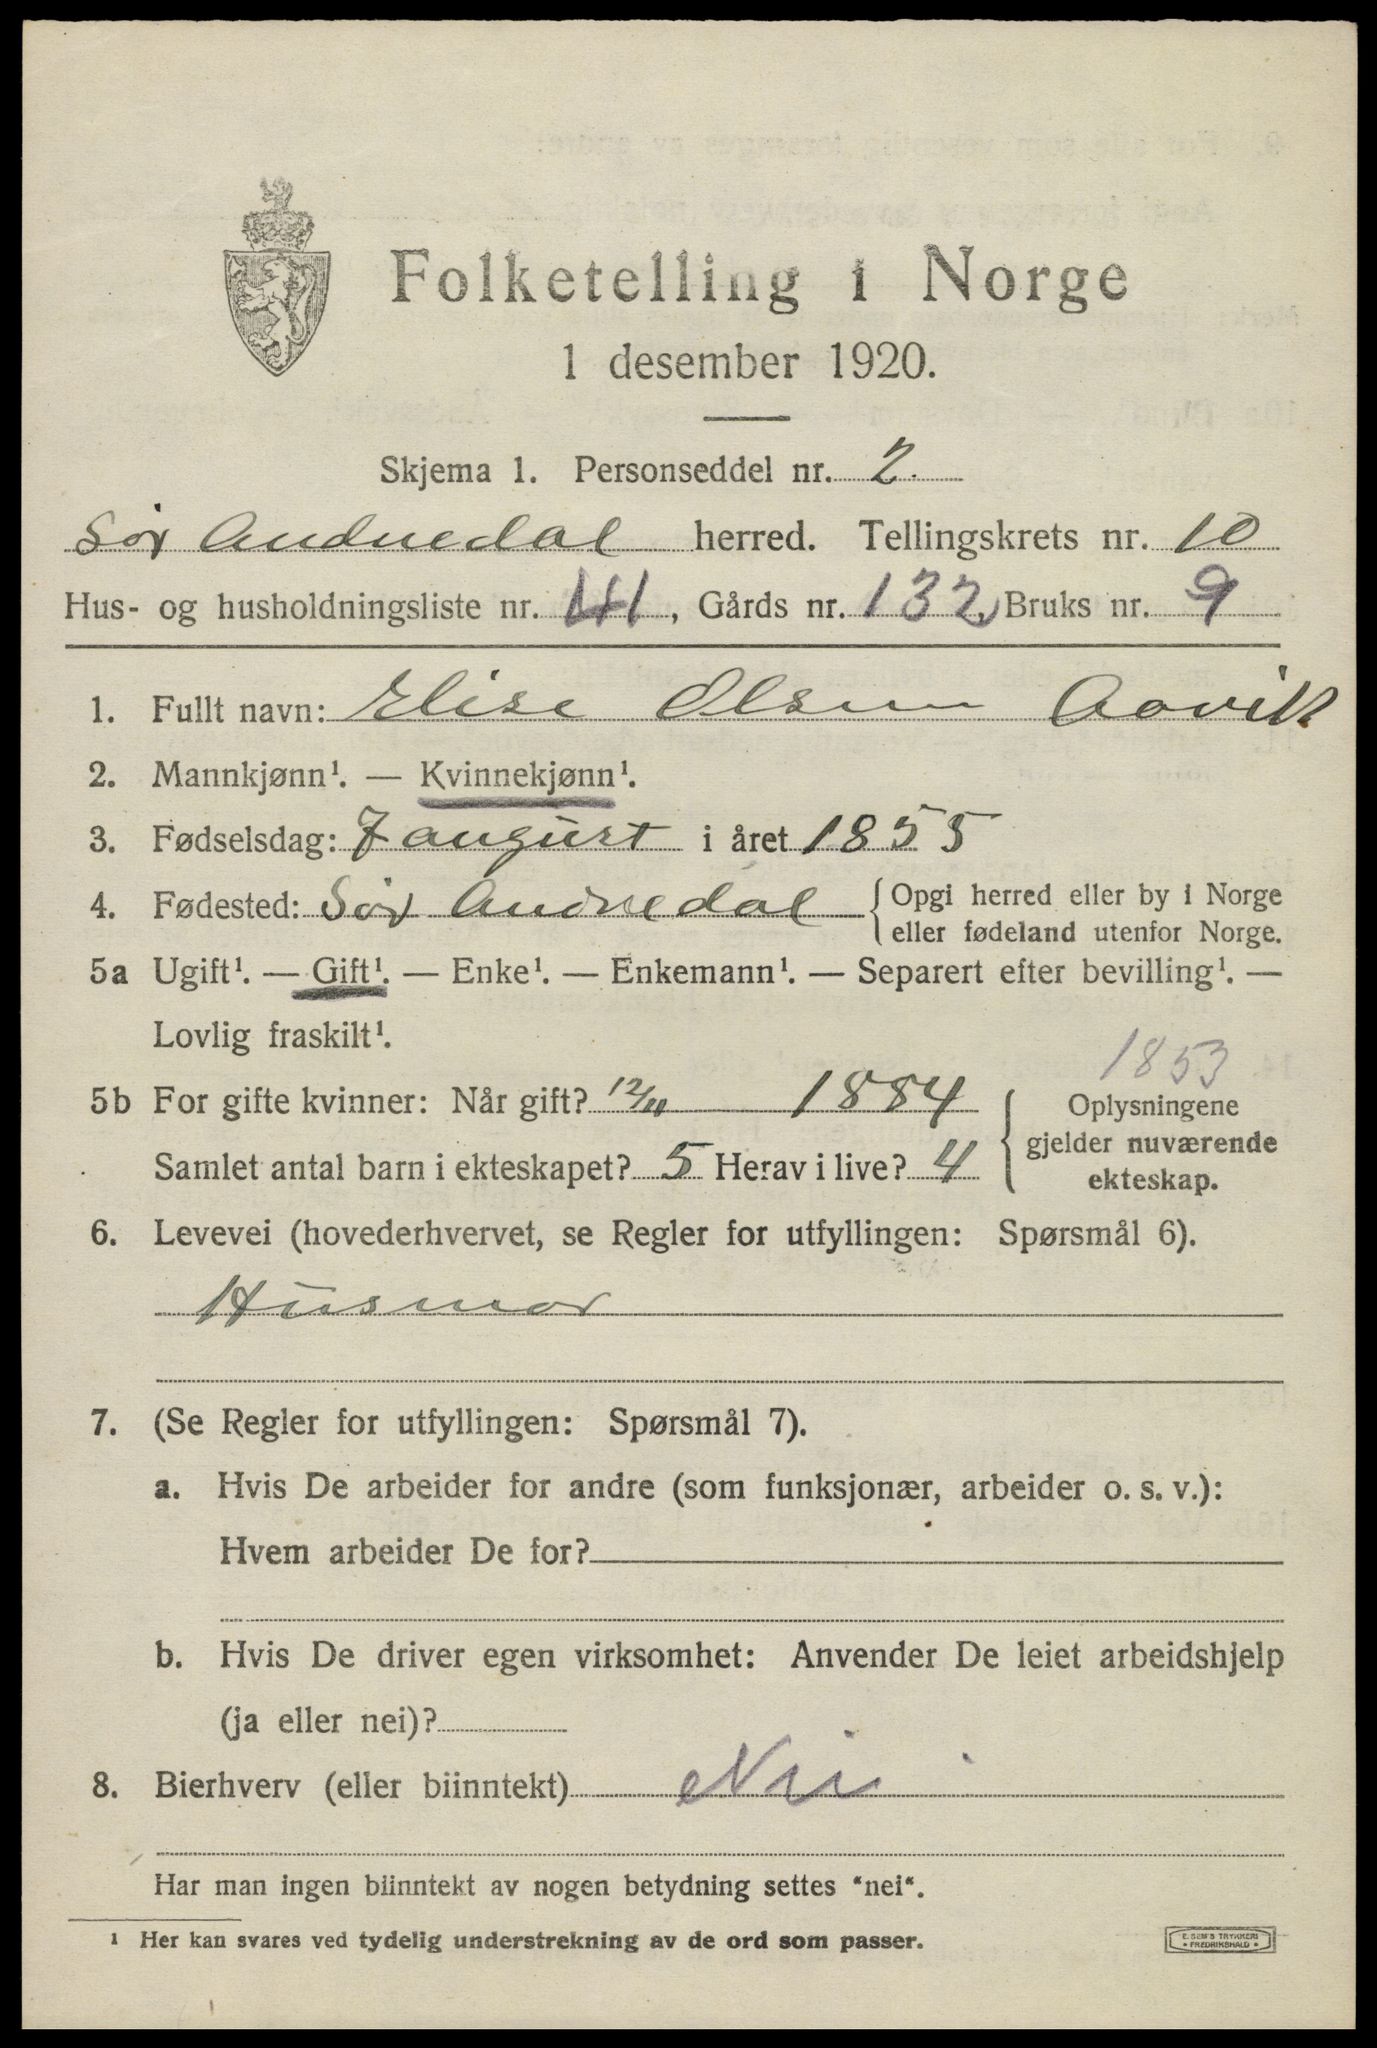 Folketelling i Norge
1 desember 1920.
Skjema 1. Personseddel nr. 2.
Sør Audnedal herred. Tellingskrets nr. 10
Hus- og husholdningsliste nr. 141, Gårds nr. 132, Bruks nr. 9
1. Fullt navn: Elise Olsen Aavik
2. Mannkjønn¹. — Kvinnekjønn¹.
3. Fødselsdag: 7 august i året 1855
4. Fødested: Sør Audnedal { Opgi herred eller by i Norge
eller fødeland utenfor Norge.
5a Ugift¹. — Gift¹. — Enke¹. — Enkemann¹. — Separert efter bevilling¹. —
Lovlig fraskilt¹.
1853
5b For gifte kvinner: Når gift? 12/11 1884
Samlet antal barn i ekteskapet? 5 Herav i live? 4
Oplysningene
gjelder nuværende
ekteskap.
6. Levevei (hovederhvervet, se Regler for utfyllingen: Spørsmål 6).
Husmor
7. (Se Regler for utfyllingen: Spørsmål 7).
a. Hvis De arbeider for andre (som funksjonær, arbeider o. s. v.):
Hvem arbeider De for?
b. Hvis De driver egen virksomhet: Anvender De leiet arbeidshjelp
(ja eller nei)?
8. Bierhverv (eller biinntekt) Nei
Har man ingen biinntekt av nogen betydning settes "nei".
1 Her kan svares ved tydelig understrekning av de ord som passer.
E. SEM'S TRYKKERI
• FREDRIKSHALD •